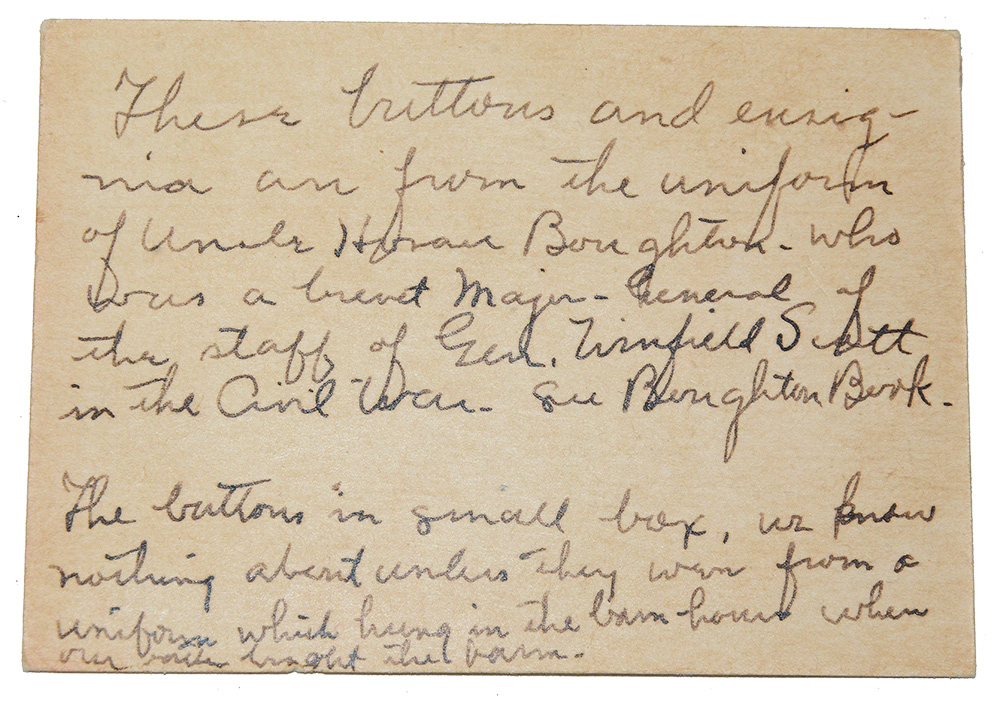 These buttons and ensig-
nia are from the uniform
of Uncle Horace Boughton - who
was a brevet Major-General of
the staff of Gen. Winfield Scott
in the Civil War - See Boughton Book.
The buttons in small box, we know
nothing about unless they were from a
uniform which hung in the barn house when
our bought the farm.